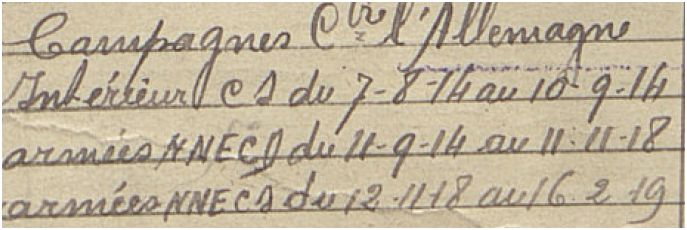 Campagnes Ctre l'Allemagne
Intérieur CS du 7-8-14 au 10-9-14
armées NNE CD du 11-9-14 au 11-11-18
armées NNE CS du 12-11-18 au 16-2-19